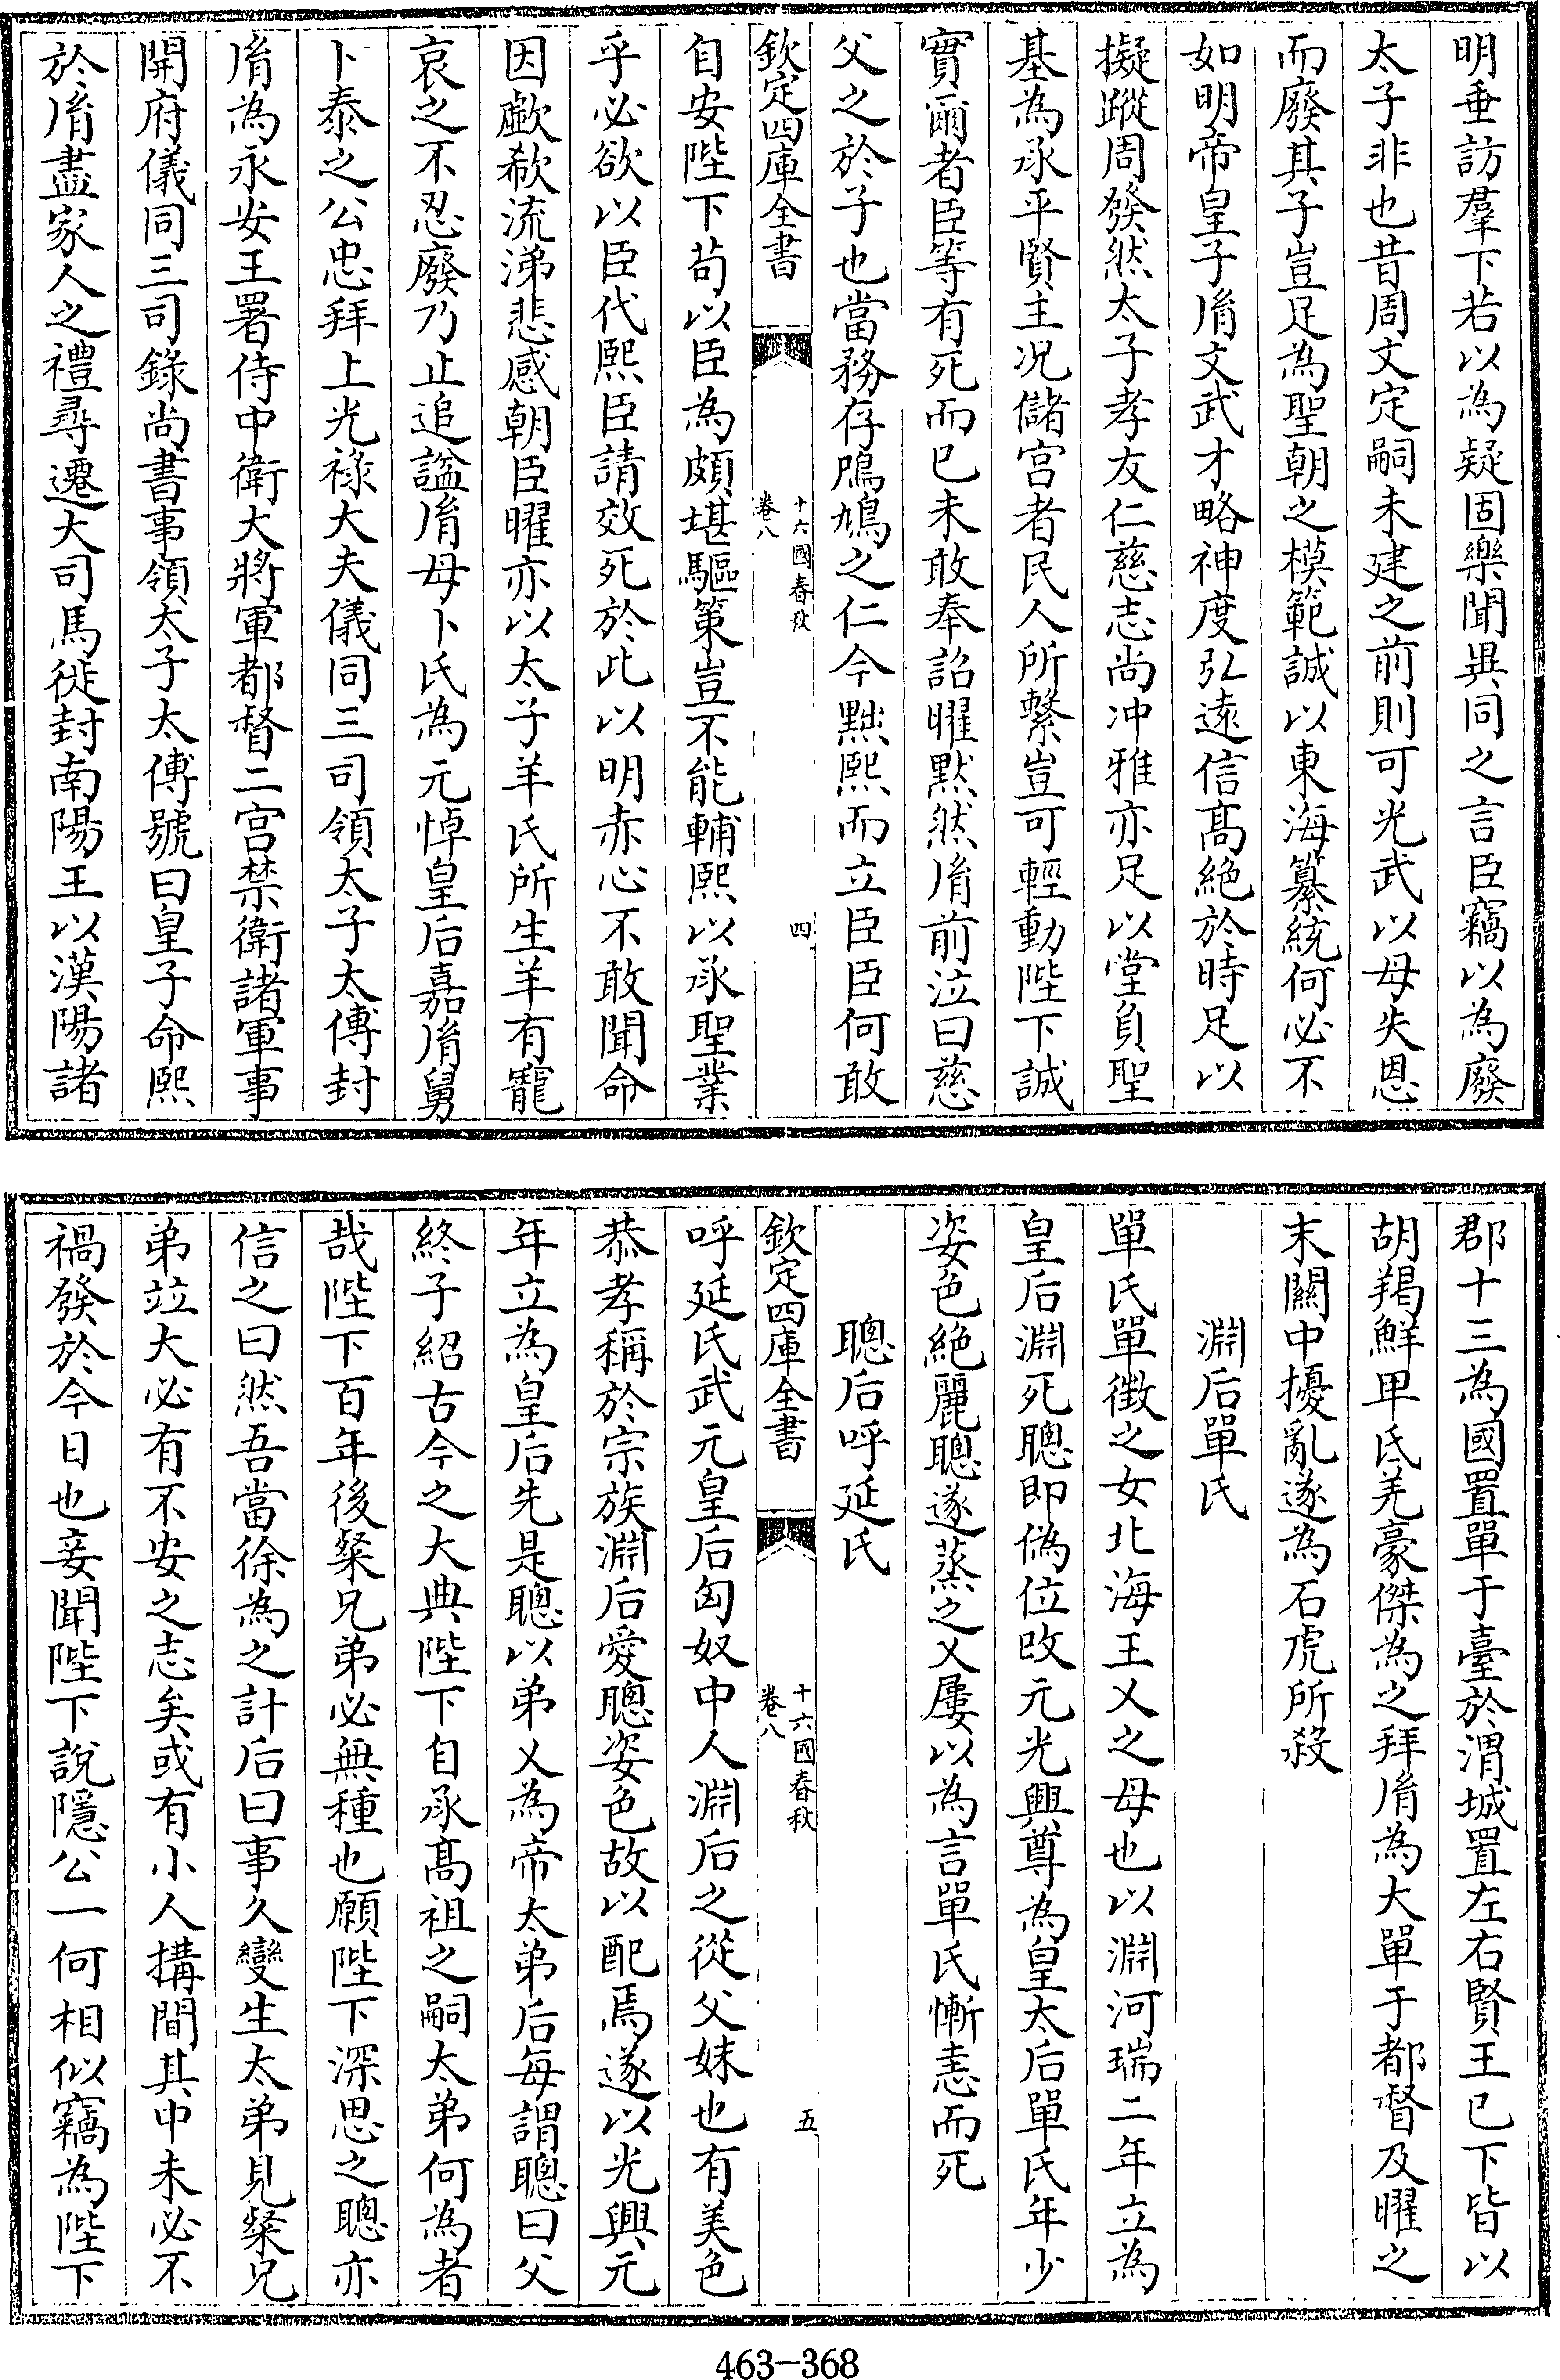 明垂訪羣下若以為疑固樂聞異同之言臣竊以為廢
太子非也昔周文定嗣未建之前則可光武以母失恩
而廢其子豈足為聖朝之模範誠以東海纂統何必不
如明帝皇子胤文武才略神度弘遠信髙絶於時足以
擬蹤周發然太子孝友仁慈志尚冲雅亦足以堂負聖
基為承平賢主况儲宫者民人所繫豈可輕動陛下誠
實爾者臣等有死而已未敢奉詔曜默然胤前泣曰慈
父之於子也當務存鳲鳩之仁今黜熙而立臣臣何敢
欽定四庫全書
十六國春秋
卷八
四
自安陛下苟以臣為頗堪驅策豈不能輔熙以承聖業
乎必欲以臣代熙臣請效死於此以明赤心不敢聞命
因歔欷流涕悲感朝臣曜亦以太子羊氏所生羊有寵
哀之不忍廢乃止追諡胤母卜氏為元悼皇后嘉胤舅
卜泰之公忠拜上光祿大夫儀同三司領太子太傅封
胤為永安王署侍中衛大將軍都督二宫禁衛諸軍事
開府儀同三司錄尚書事領太子太傅號曰皇子命熙
於胤盡家人之禮尋遷大司馬徙封南陽王以漢陽諸
郡十三為國置單于臺於渭城置左右賢王已下皆以
胡羯鮮卑氐羌豪傑為之拜胤為大單于都督及曜之
末關中擾亂遂為石虎所殺
淵后單氏
單氏單徵之女北海王乂之母也以淵河瑞二年立為
皇后淵死聰即偽位改元光興尊為皇太后單氏年少
姿色絶麗聰遂蒸之乂屢以為言單氏慚恚而死
聰后呼延氏
欽定四庫全書
十六國春秋
卷八
五
呼延氏武元皇后匈奴中人淵后之從父妹也有美色
恭孝稱於宗族淵后愛聰姿色故以配焉遂以光興元
年立為皇后先是聰以弟乂為帝太弟后每謂聰曰父
終子紹古今之大典陛下自承髙祖之嗣太弟何為者
哉陛下百年後粲兄弟必無種也願陛下深思之聰亦
信之曰然吾當徐為之計后曰事久變生太弟見粲兄
弟竝大必有不安之志矣或有小人搆間其中未必不
禍發於今日也妾聞陛下說隱公一何相似竊為陛下
463-368